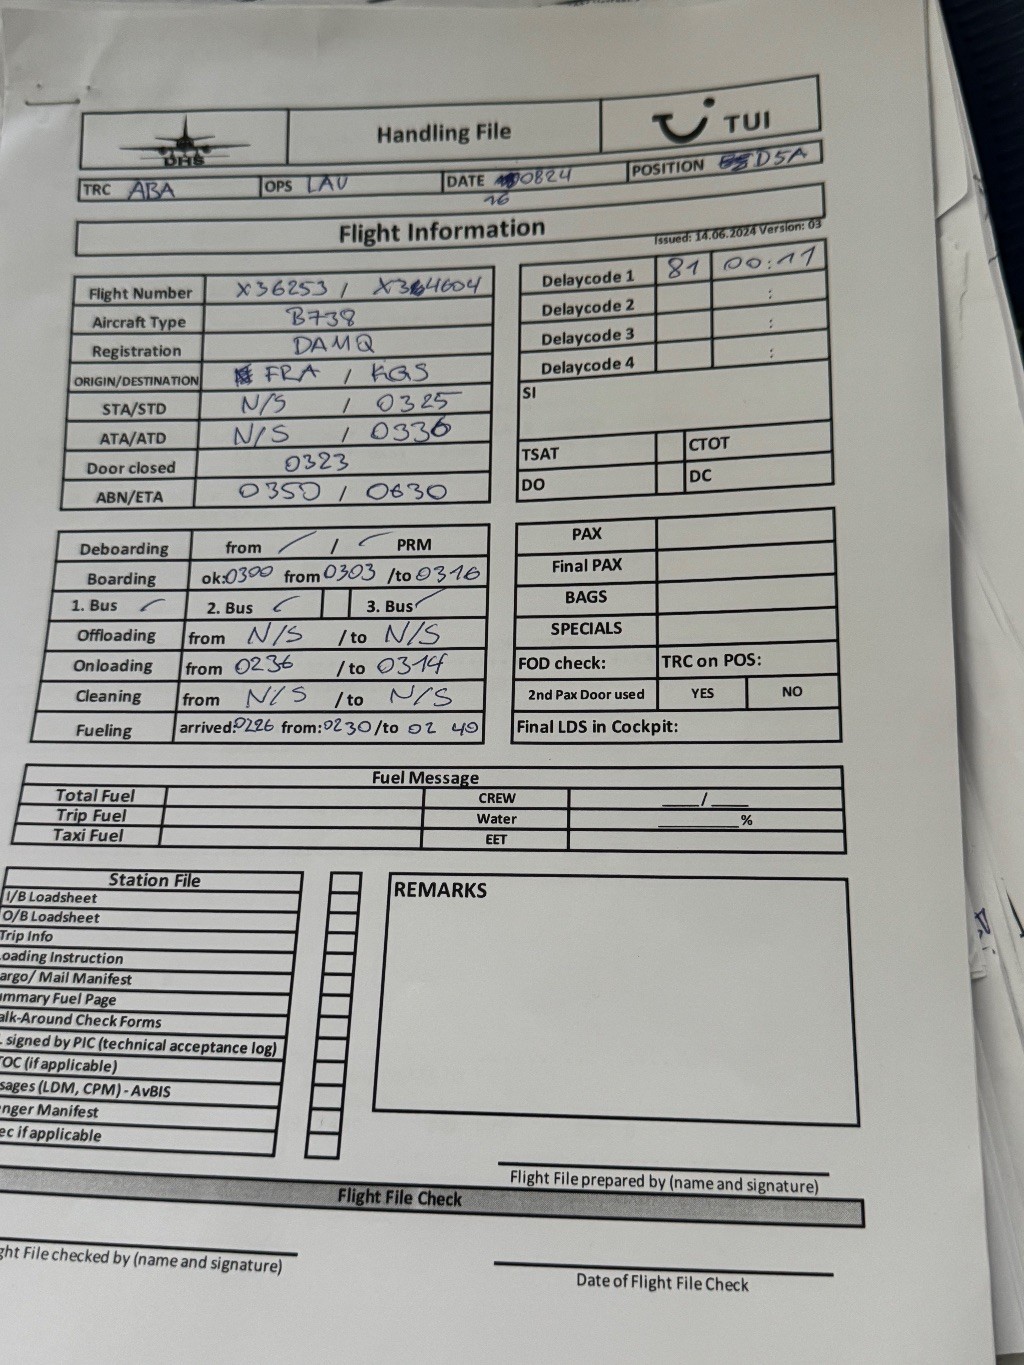 DHS
Handling File
TUI
TRC ABA OPS LAU DATE 0824 POSITION D5A
16
Flight Information
Issued: 14.06.2024 Version: 03
Flight Number X36253 / X364604
Aircraft Type B738
Registration DAMQ
ORIGIN/DESTINATION FRA / KGS
STA/STD N/S / 0325
ATA/ATD N/S / 0336
Door closed 0323
ABN/ETA 0350 / 0630
Delaycode 1 81 00:11
Delaycode 2 :
Delaycode 3 :
Delaycode 4 :
SI
TSAT CTOT
DO DC
Deboarding from / PRM
Boarding ok:0300 from 0303 /to 0316
1. Bus 2. Bus 3. Bus
Offloading from N/S /to N/S
Onloading from 0236 /to 0314
Cleaning from N/S /to N/S
Fueling arrived:0226 from:0230 /to 02 40
PAX
Final PAX
BAGS
SPECIALS
FOD check: TRC on POS:
2nd Pax Door used YES NO
Final LDS in Cockpit:
Fuel Message
Total Fuel CREW ____/____
Trip Fuel Water ________%
Taxi Fuel EET
Station File
I/B Loadsheet
O/B Loadsheet
Trip Info
oading Instruction
argo/ Mail Manifest
mmary Fuel Page
alk-Around Check Forms
. signed by PIC (technical acceptance log)
TOC (if applicable)
sages (LDM, CPM) - AvBIS
nger Manifest
ec if applicable
REMARKS
Flight File prepared by (name and signature)
Flight File Check
ght File checked by (name and signature)
Date of Flight File Check